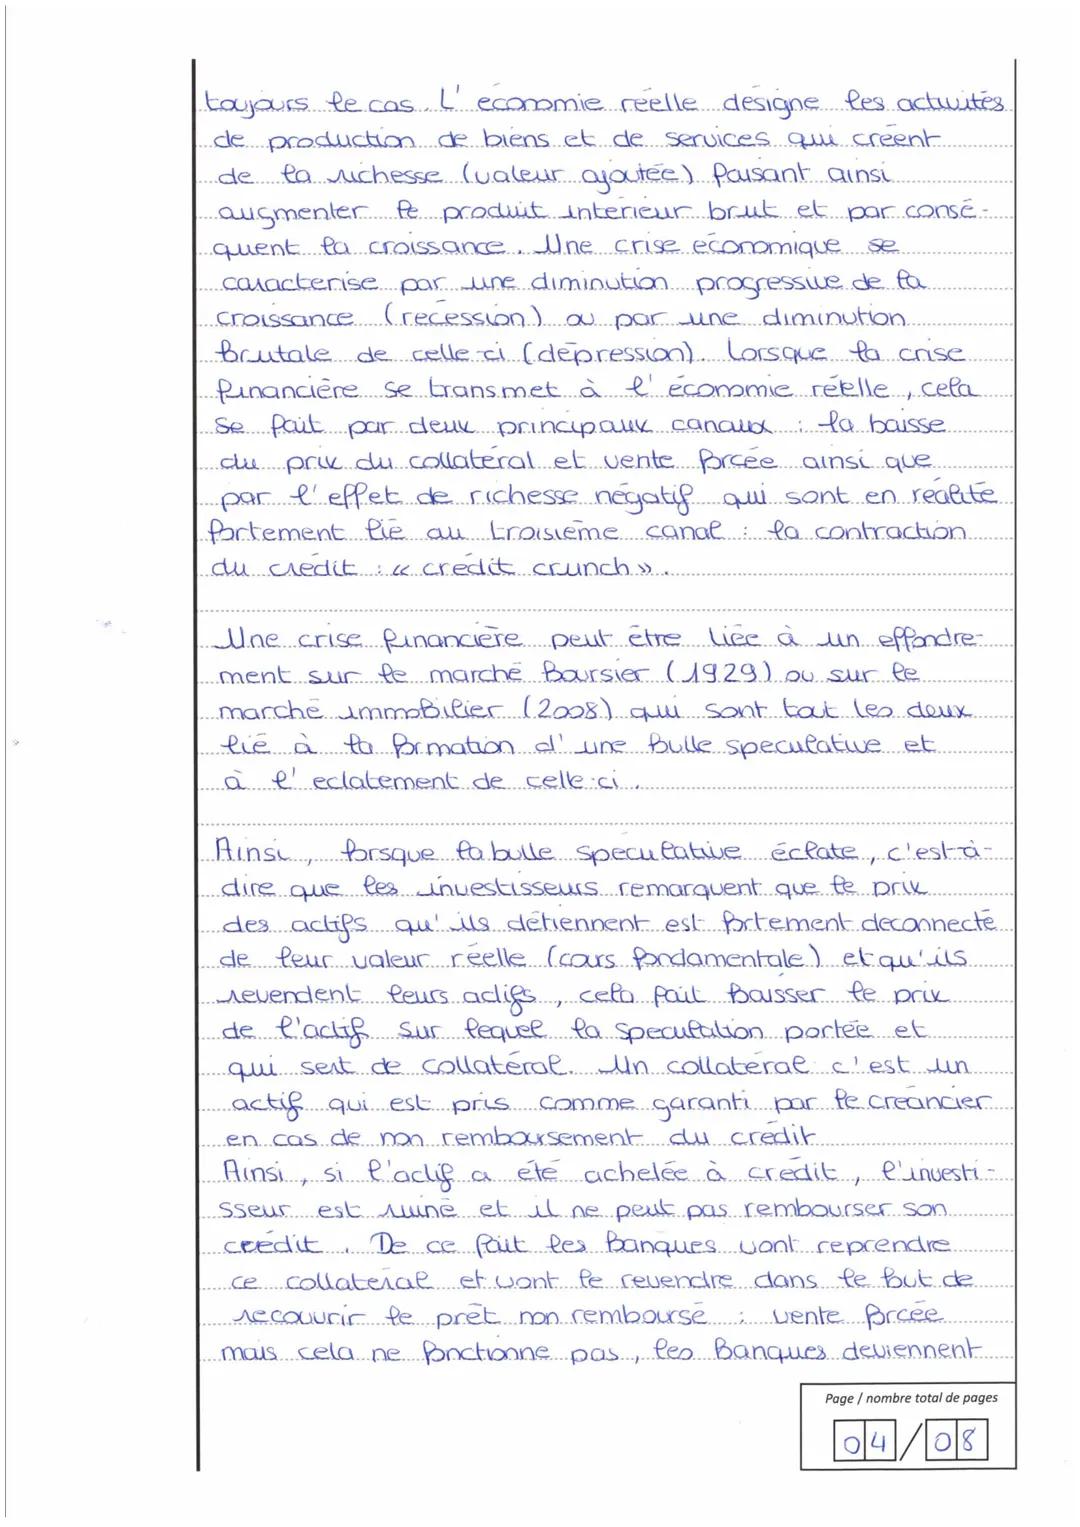 toujours le cas. L'économie réelle désigne les activités
de production de biens et de services qui créent
de la richesse (valeur ajoutée) faisant ainsi
augmenter le produit intérieur brut et par consé-
quent la croissance. Une crise économique se
caractérise par une diminution progressive de la
croissance (récession) ou par une diminution
brutale de celle-ci (dépression). Lorsque la crise
financière se transmet à l'économie réelle, cela
se fait par deux principaux canaux : la baisse
du prix du collatéral et vente forcée ainsi que
par l'effet de richesse négatif qui sont en réalité
fortement lié au troisième canal : la contraction
du crédit : « credit crunch ».
Une crise financière peut être liée à un effondre-
ment sur le marché Boursier (1929) ou sur le
marché immobilier (2008) qui sont tout les deux
lié à la formation d'une Bulle spéculative et
à l'eclatement de celle-ci.
Ainsi, lorsque la bulle spéculative éclate, c'est-à-
dire que les investisseurs remarquent que le prix
des actifs qu'ils détiennent est fortement deconnecté
de leur valeur réelle (cours fondamentale) et qu'ils
revendent leurs actifs, cela fait Baisser le prix
de l'actif sur lequel la spéculation portée et
qui sert de collatéral. Un collatéral c'est un
actif qui est pris comme garanti par le créancier
en cas de non remboursement du crédit
Ainsi, si l'actif a été achetée à crédit, l'investi-
sseur est ruiné et il ne peut pas rembourser son
crédit. De ce fait les Banques vont reprendre
ce collatéral et vont le revendre dans le But de
recouvrir le prêt non remboursé : vente forcée
mais cela ne fonctionne pas, les Banques deviennent
Page / nombre total de pages
04/08